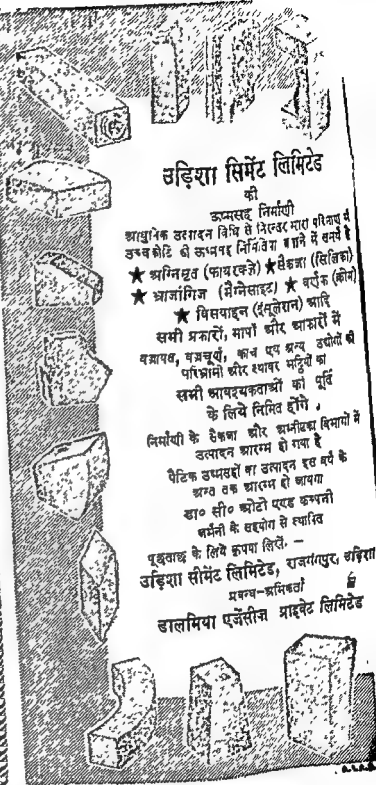 उड़िशा सिमेंट लिमिटेड
की
ऊष्मसह निर्माणी
आधुनिक उत्पादन विधि से निरन्तर भारी परिमाण में
उच्चकोटि की ऊष्मसह निर्मितियां बनाने में समर्थ है
★ अग्निमृत (फायरक्ले) ★ सैकजा (सिलिका)
★ भ्राजांगिज (मैग्नेसाइट) ★ वर्णक (क्रोम)
★ विसयाइन (इंसुलेशन) आदि
सभी प्रकारों, मापों और आकारों में
काच एवं अन्य उद्योगों की
परिभ्रामी और स्थावर भट्ठियों की
सभी आवश्यकताओं की पूर्ति
के लिये निर्मित होंगे ,
निर्माणी के सैकजा और विभागों में
उत्पादन आरम्भ हो गया है
पैठिक उष्मसहों का उत्पादन इस वर्ष के
अन्त तक आरम्भ हो जायगा
डा० सी० ओटो एण्ड कम्पनी
जर्मनी के सहयोग से स्थापित
पूछताछ के लिये कृपया लिखें. —
उड़िशा सीमेंट लिमिटेड, राजगंगपुर, उड़िशा
प्रबन्ध-अभिकर्ता
डालमिया एजेंसीज प्राइवेट लिमिटेड